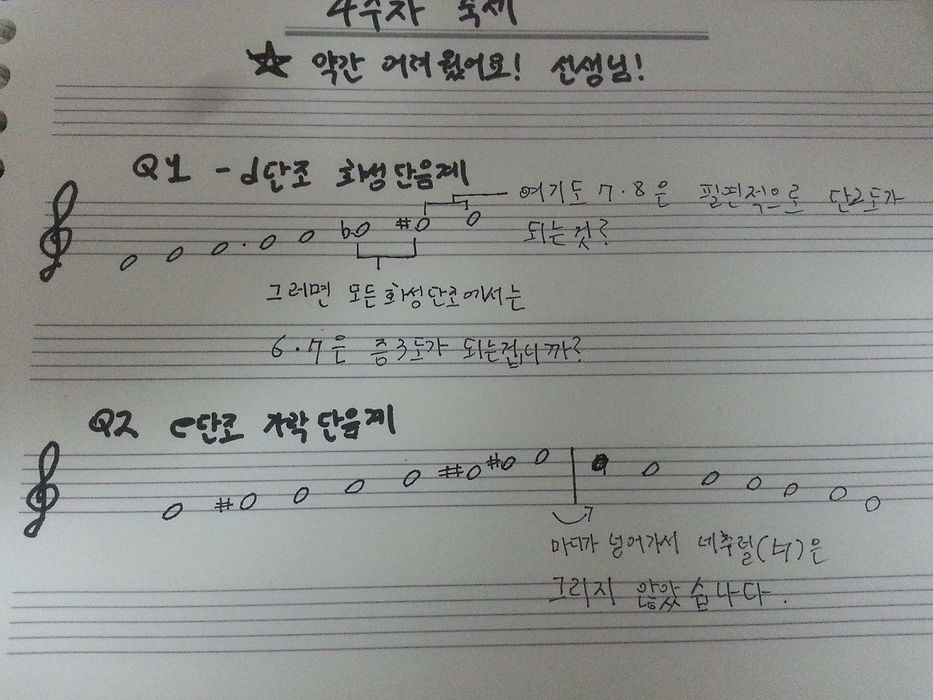 4주차 숙제
☆ 약간 어려웠어요! 선생님!
Q1 - d단조 화성단음계
여기도 7·8은 필연적으로 단2도가
되는것?
그러면 모든화성단조에서는
6·7은 증3도가 되는겁니까?
Q2 e단조 가락단음계
마디가 넘어가서 네추럴(♮)은
그리지 않았습니다.